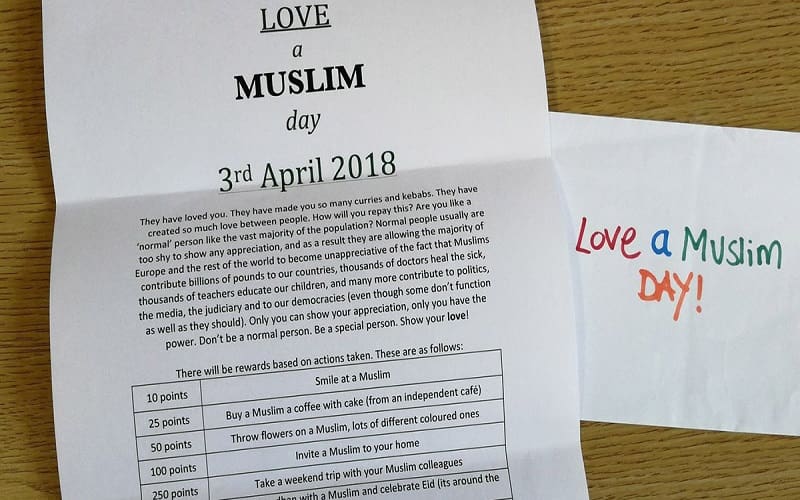 LOVE
a
MUSLIM
day
3rd April 2018
They have loved you. They have made you so many curries and kebabs. They have
created so much love between people. How will you repay this? Are you like a
'normal' person like the vast majority of the population? Normal people usually are
too shy to show any appreciation, and as a result they are allowing the majority of
Europe and the rest of the world to become unappreciative of the fact that Muslims
contribute billions of pounds to our countries, thousands of doctors heal the sick,
thousands of teachers educate our children, and many more contribute to politics,
the media, the judiciary and to our democracies (even though some don't function
as well as they should). Only you can show your appreciation, only you have the
power. Don't be a normal person. Be a special person. Show your love!
There will be rewards based on actions taken. These are as follows:
10 points Smile at a Muslim
25 points Buy a Muslim a coffee with cake (from an independent café)
50 points Throw flowers on a Muslim, lots of different coloured ones
100 points Invite a Muslim to your home
250 points Take a weekend trip with your Muslim colleagues
with a Muslim and celebrate Eid (its around the
Love a Muslim
DAY!